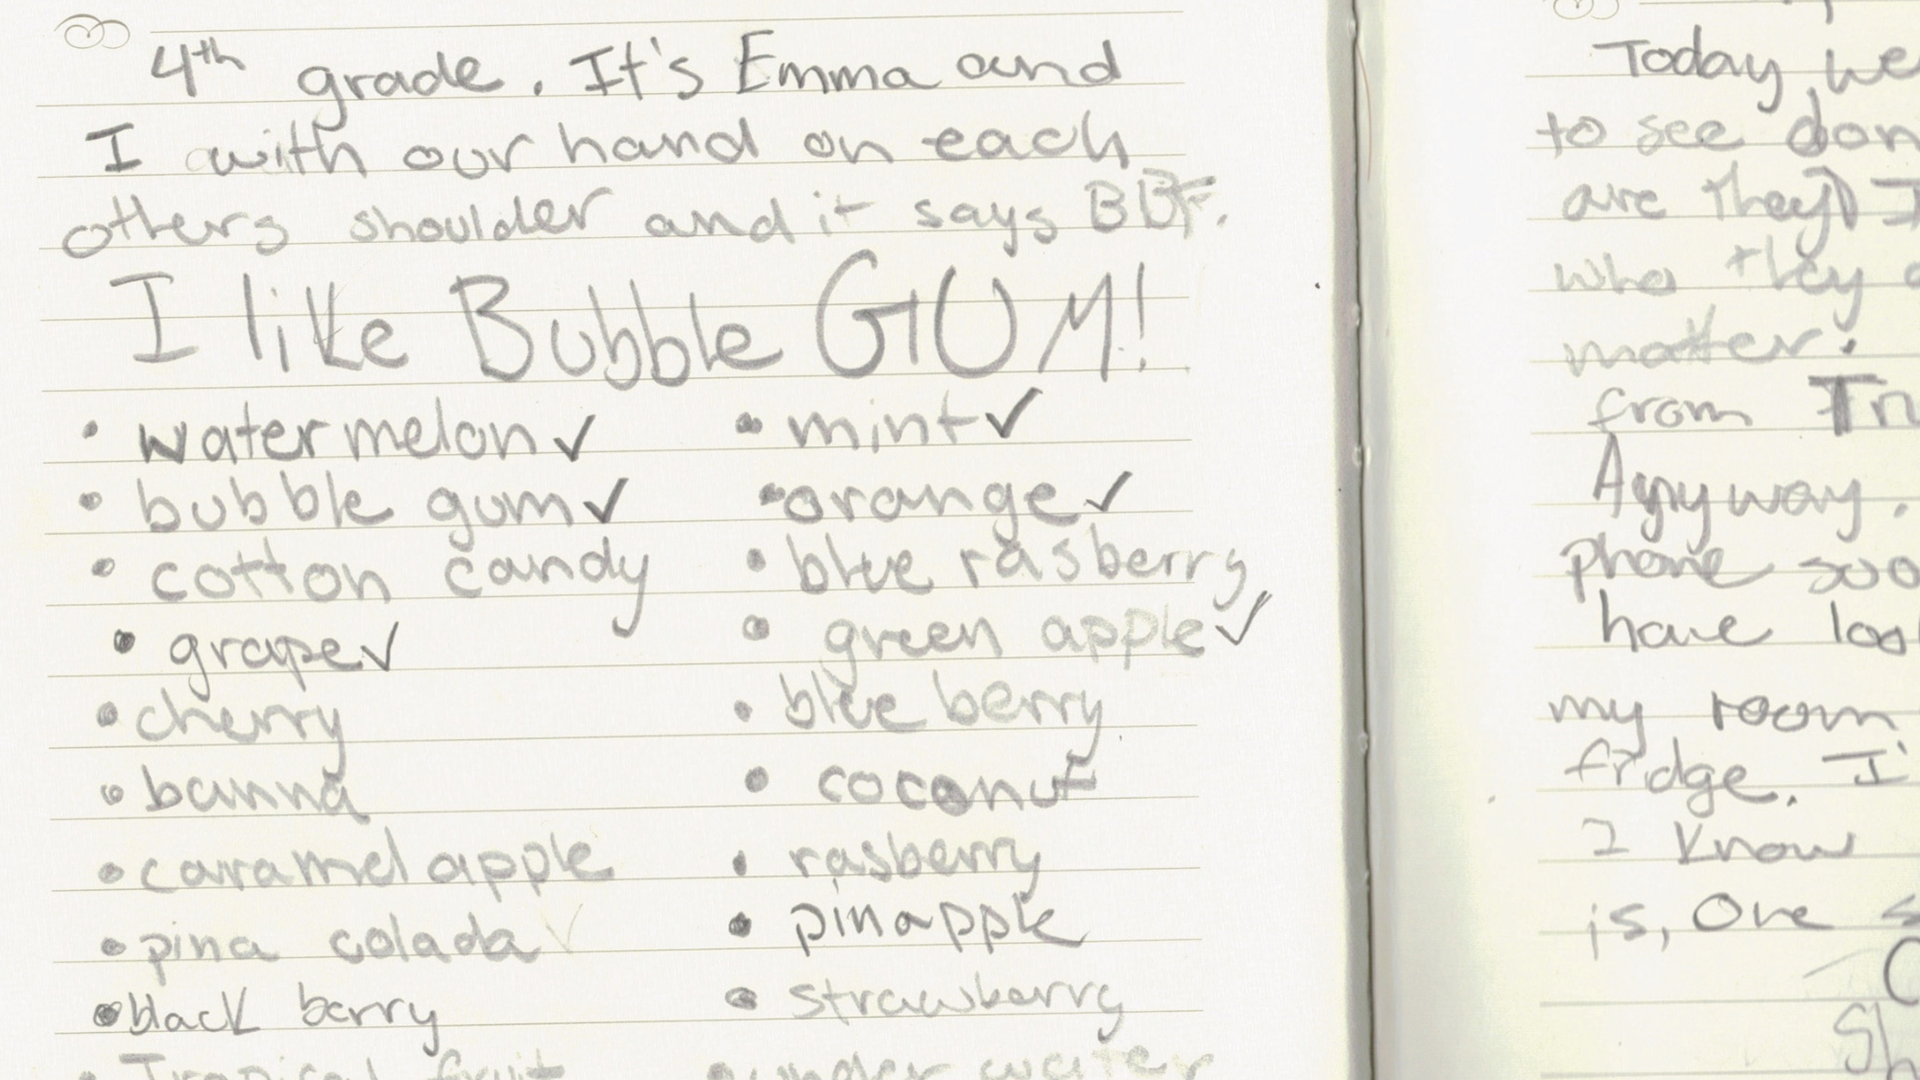 4th grade. It's Emma and
I with our hand on each
others shoulder and it says BBF.
I like Bubble GUM!
• watermelon ✓
• bubble gum ✓
• cotton candy
• grape ✓
• cherry
• banna
• caramel apple
• pina colada ✓
• black berry
• Tropical fruit
• mint ✓
• orange ✓
• blue rasberry
• green apple ✓
• blue berry
• coconut
• rasberry
• pinapple
• strawberry
• under water
Today we
to see
are they) I
who they
matter.
from
Anyway.
phone soo
have
my room
fridge. I'
I know
is, One s